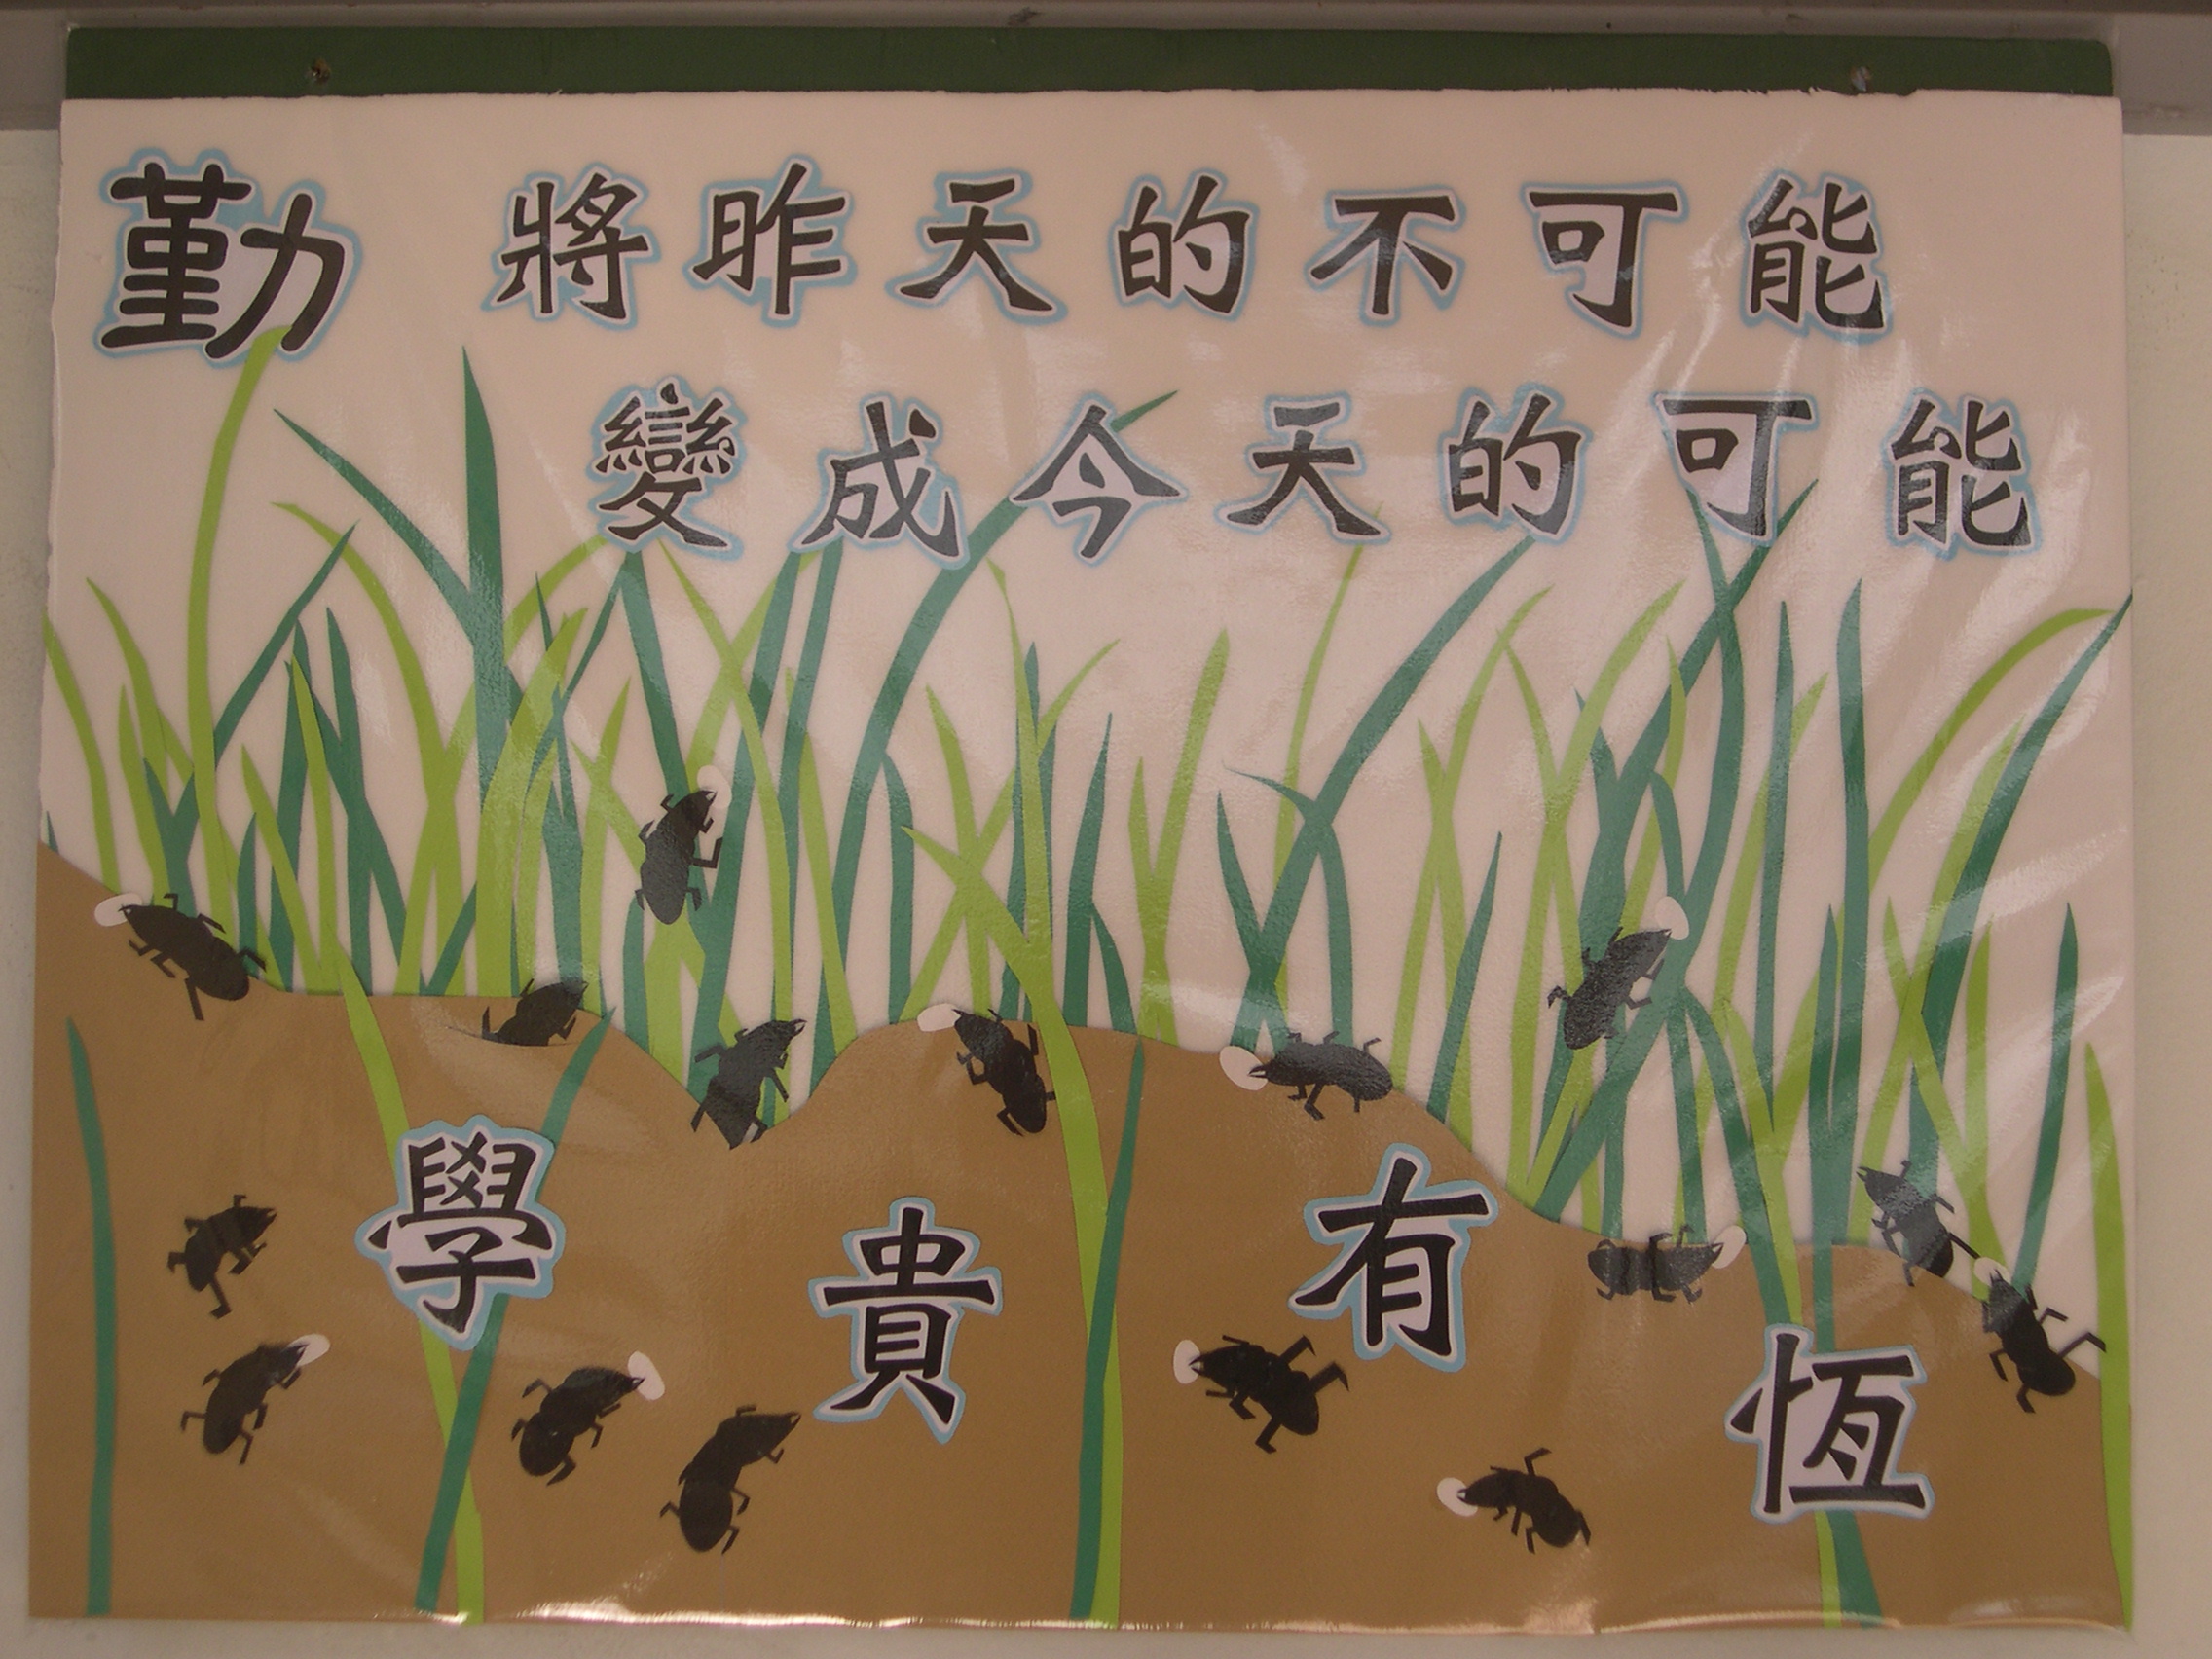 勤 將昨天的不可能
變成今天的可能
學貴有恆